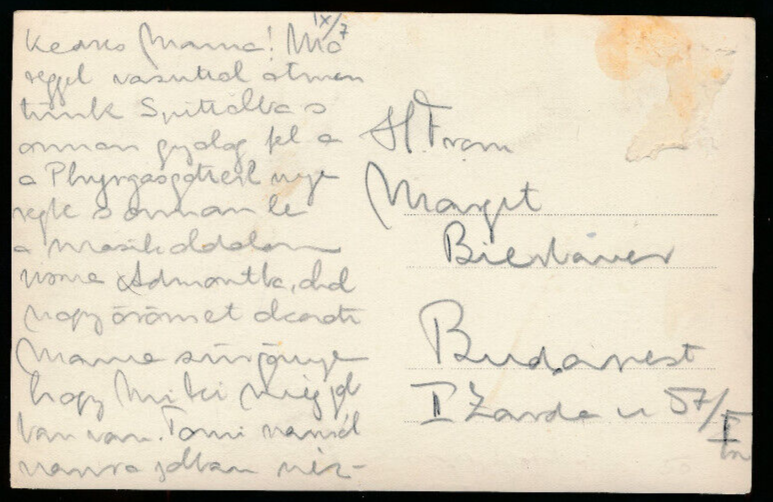 IX/7
Kedves Mama! Ma
reggel vasuttal átmen
tünk Spitálba s
onnan gyalog fel a
a Phyrgasgatterl nye
regbe s onnan le
a másik oldalon
Admontba, ahol
nagy örömet okozott
Mama sürgönye
hogy Miki még job
ban van. Tomi
jobban néz-
H. Frau
Margit
Bierbauer
Budapest
II Zárda u 57/